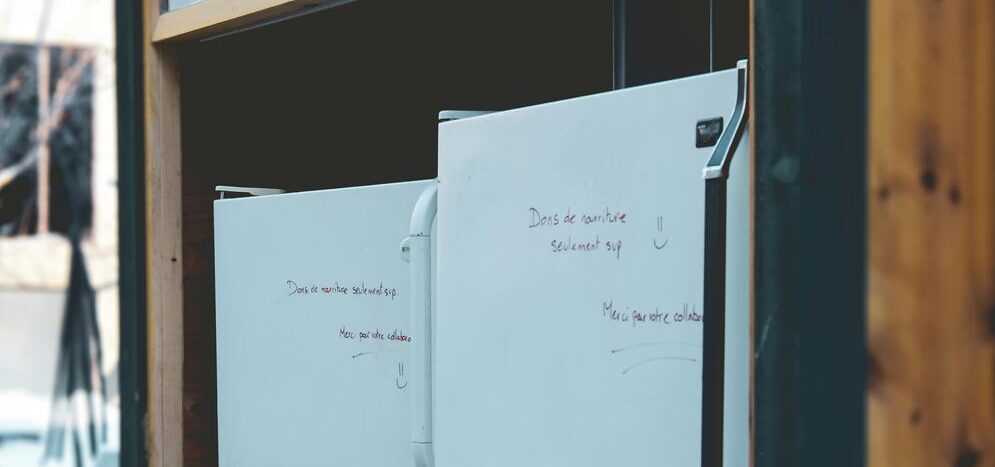 Dons de narriture seulement svp.
Merci par votre collabo
Dons de narriture
seulement svp
Merci par votre collabo